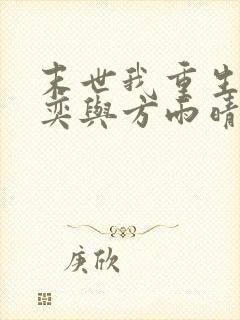 末世我重生
奕与方雨晴
庚欣